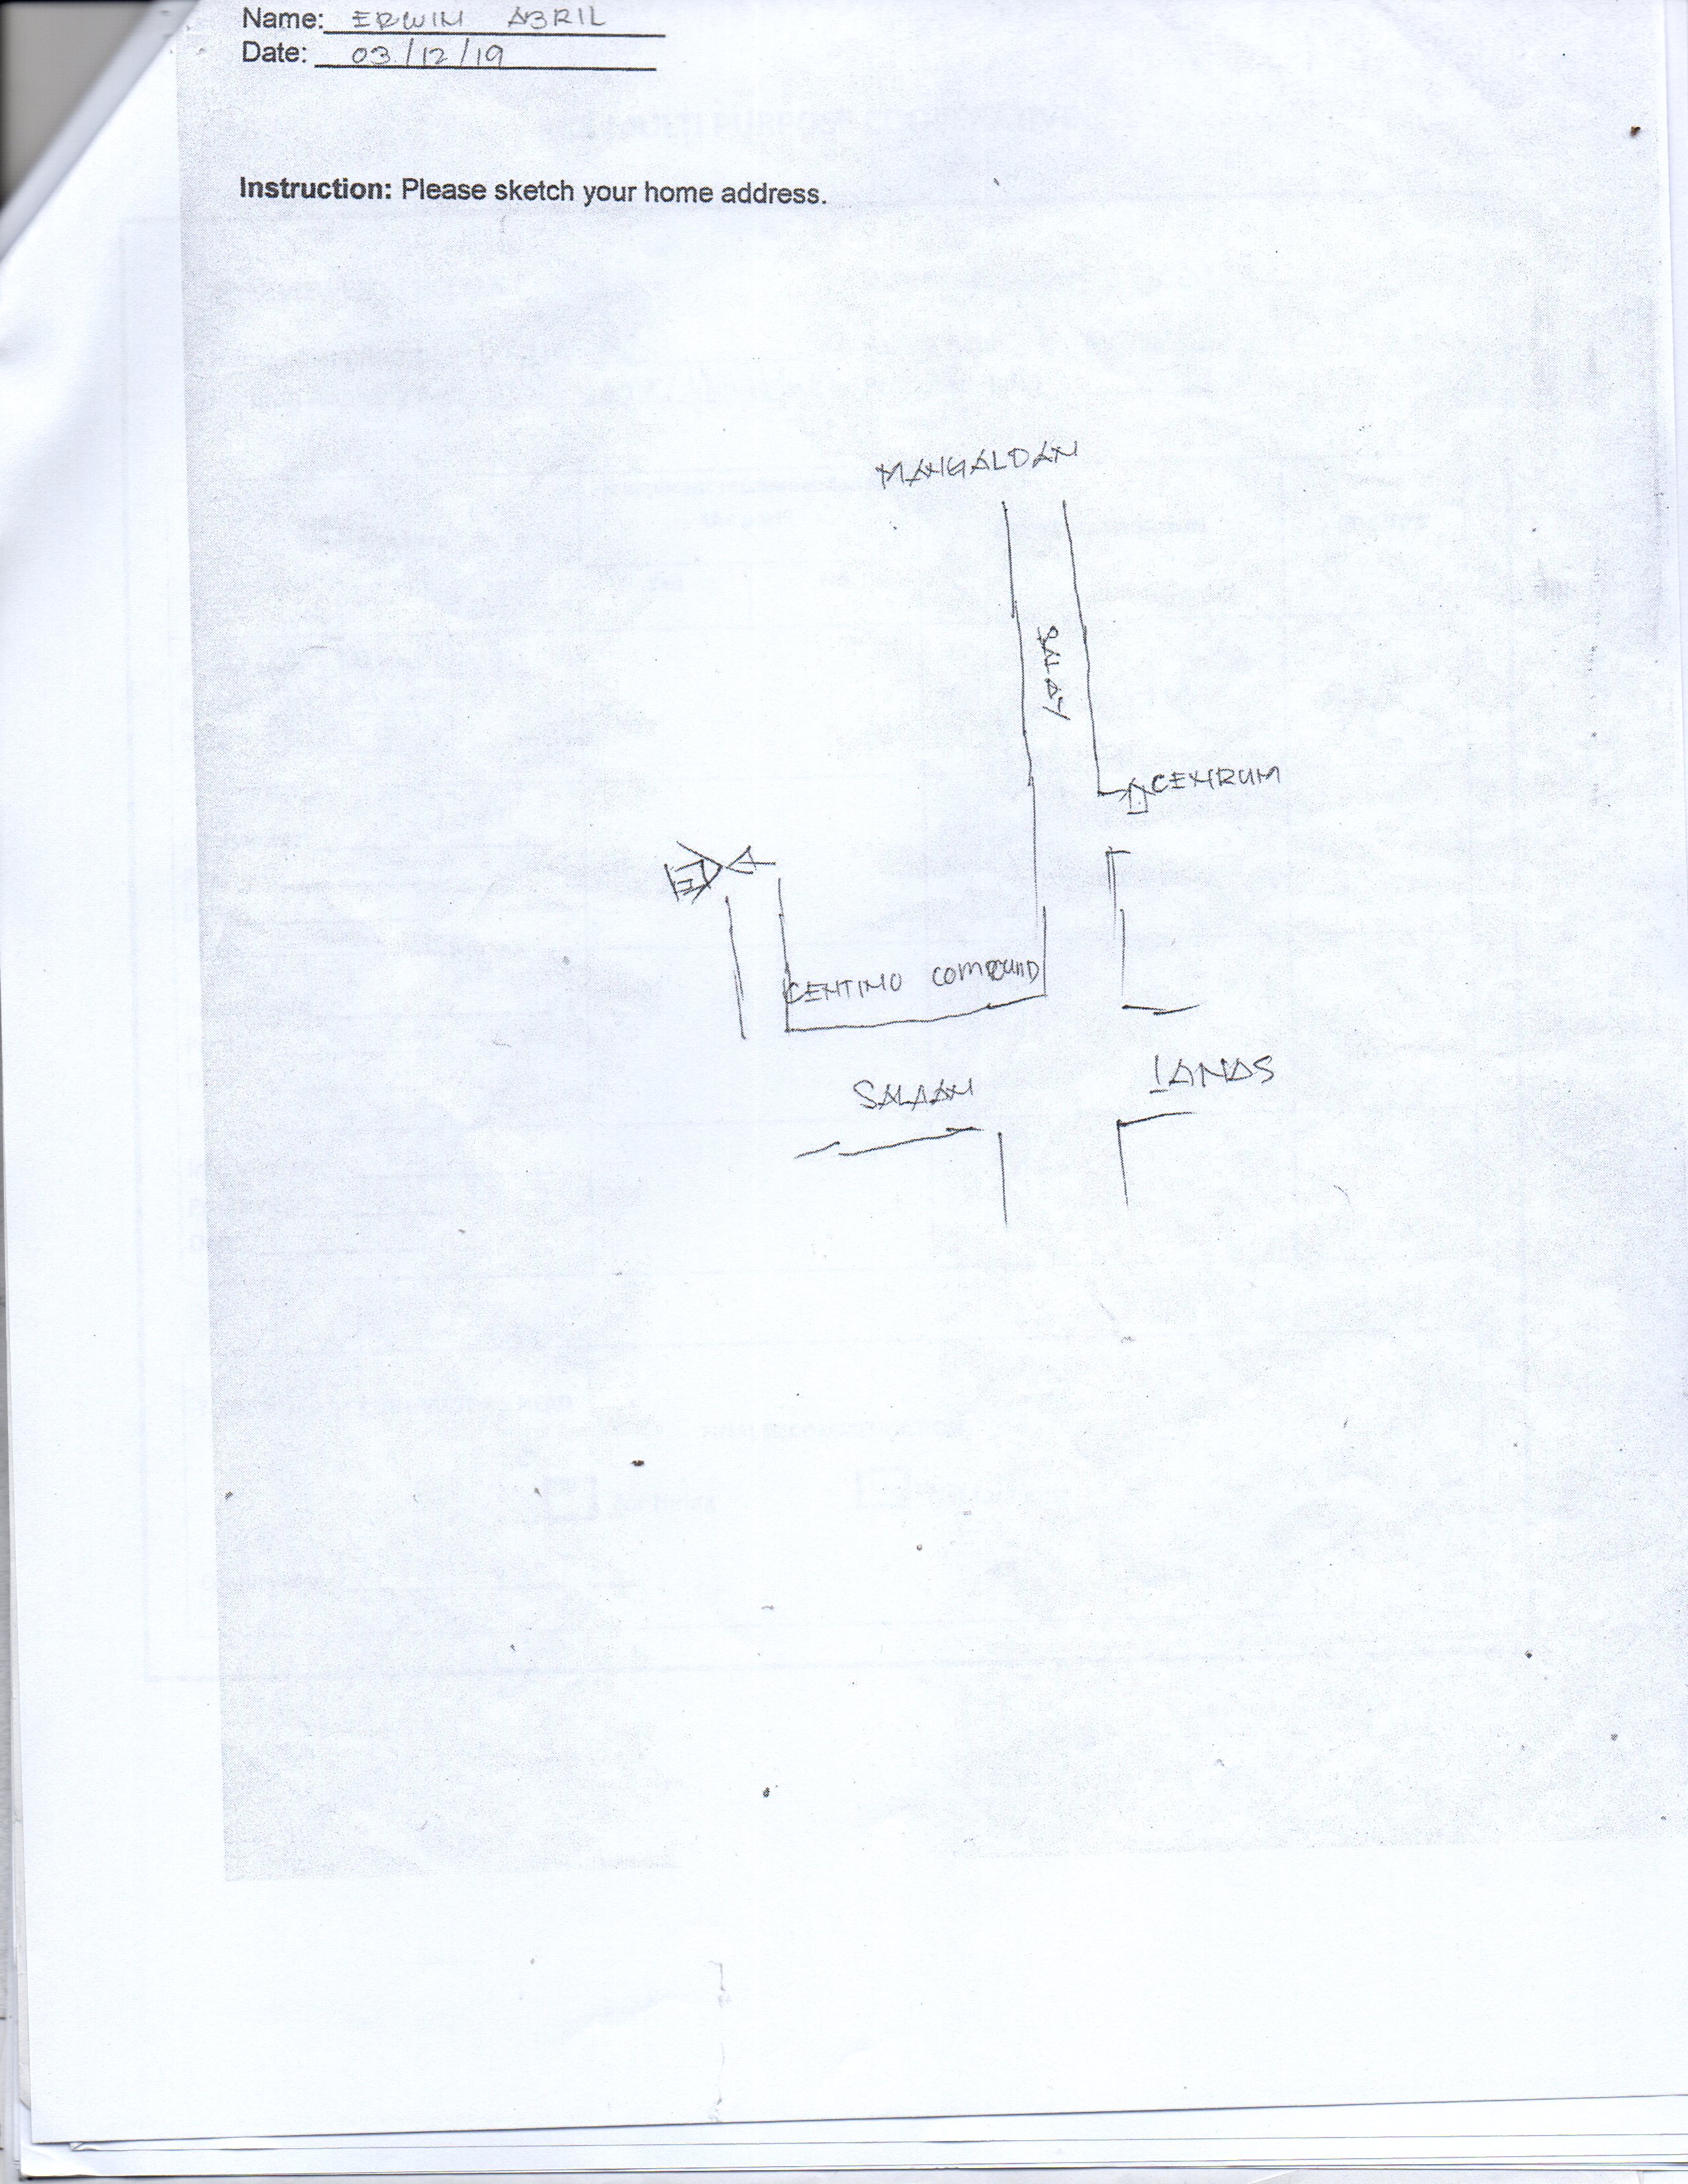 Name: ERWIN ABRIL
Date: 03/12/19
Instruction: Please sketch your home address.
MANGALDAN
SALAY
CENTRUM
CENTINO COMPOUND
SALAAN
LANAS